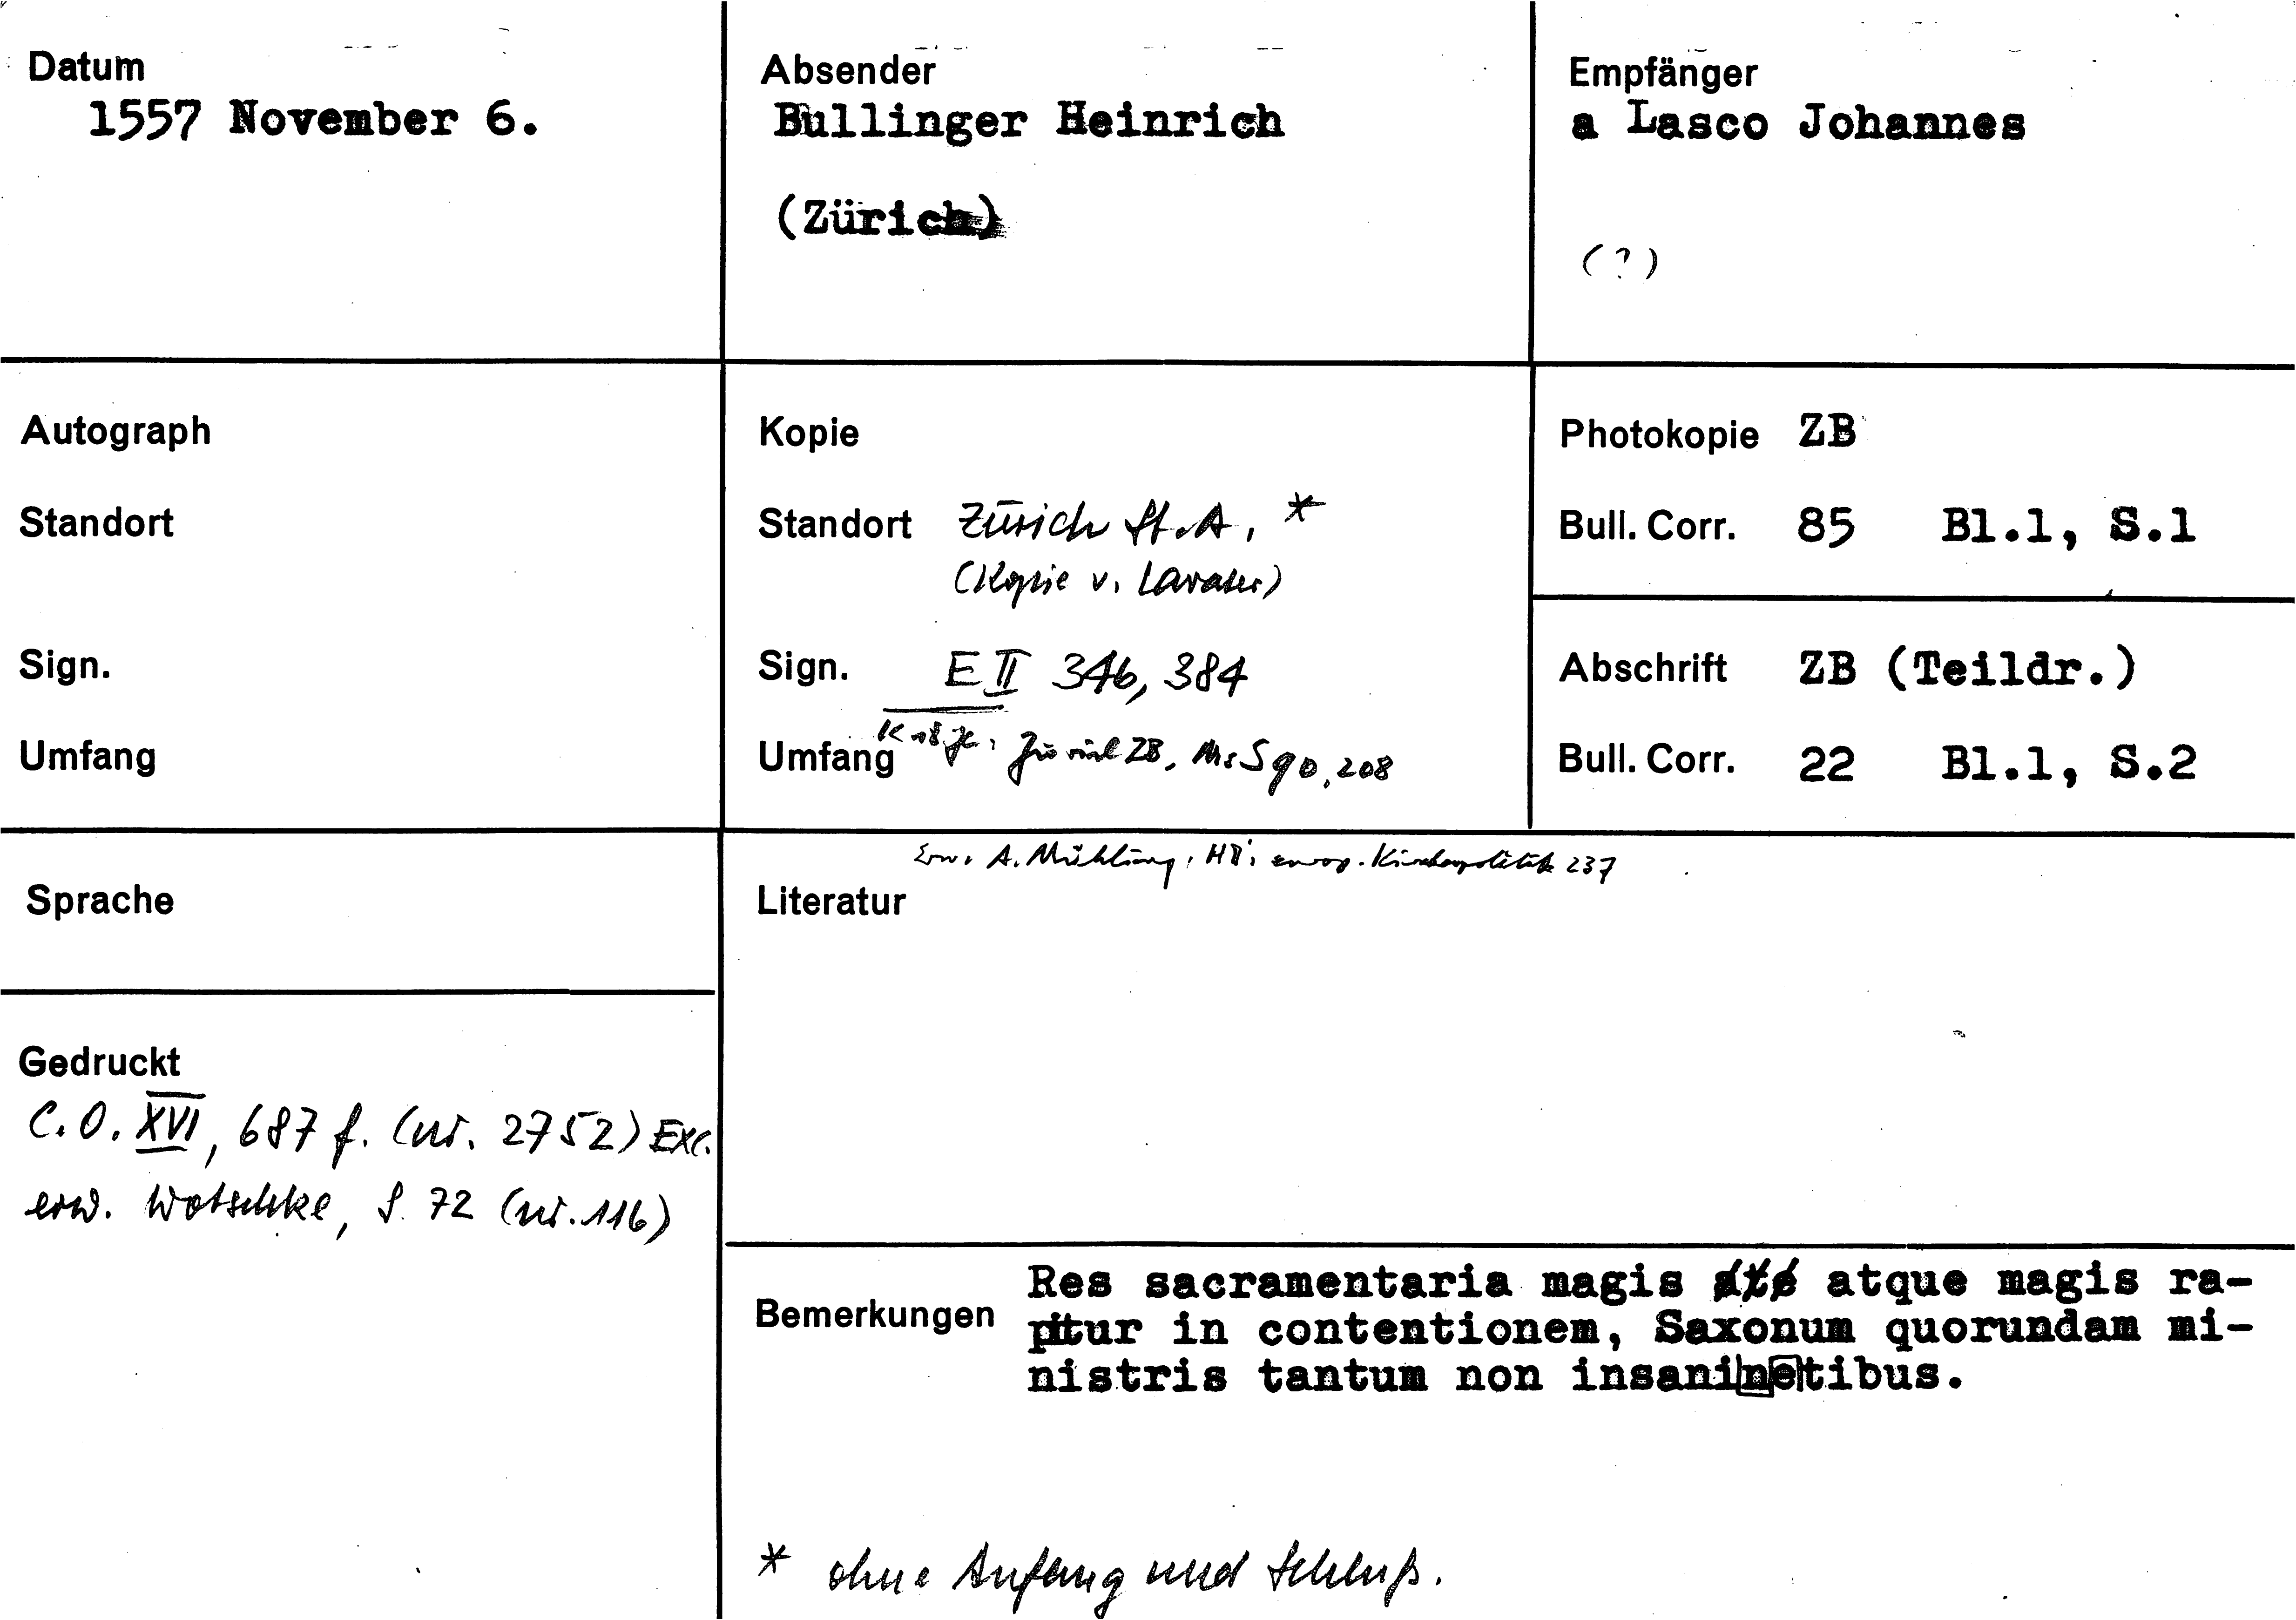 Datum
1557 November 6.
Absender
Bullinger Heinrich
(Zürich)
Empfänger
a Lasco Johannes
(?)
Autograph
Standort
Sign.
Umfang
Kopie
Standort Zürich St.A, *
(Kopie v. Lavater)
Sign. E II 346, 384
Umfang K 18 Jh. Zürich ZB, Ms S 90, 208
Photokopie ZB
Bull. Corr. 85 Bl.1, S.1
Abschrift ZB (Teildr.)
Bull. Corr. 22 Bl.1, S.2
Sprache
Gedruckt
C.O. XVI, 687 f. (nr. 2752) Exc.
erw. Wotschke, S. 72 (nr. 116)
Erw. A. Mühling, HB's europ. Kirchenpolitik 237
Literatur
Bemerkungen
Res sacramentaria magis atque magis ra-
pitur in contentionem, Saxonum quorundam mi-
nistris tantum non insaninetibus.
* ohne Anfang und Schluß.